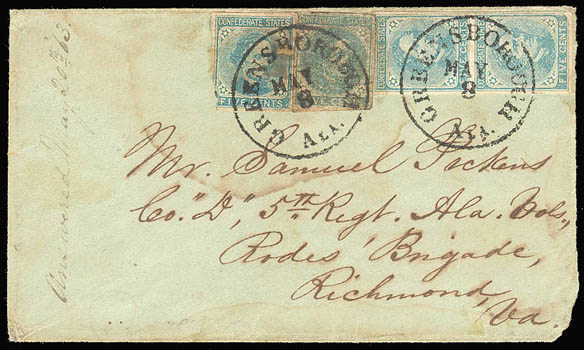 CONFEDERATE STATES
CONFEDERATE STATES
FIVE CENTS
FIVE CENTS
FIVE CENTS
GREENSBOROUGH
MAY
8
ALA.
GREENSBOROUGH
MAY
8
ALA.
Mr. Samuel Pickens
Co. "D", 5th Regt. Ala. Vols.,
Rodes' Brigade,
Richmond,
Va.
Answered May 20th 63